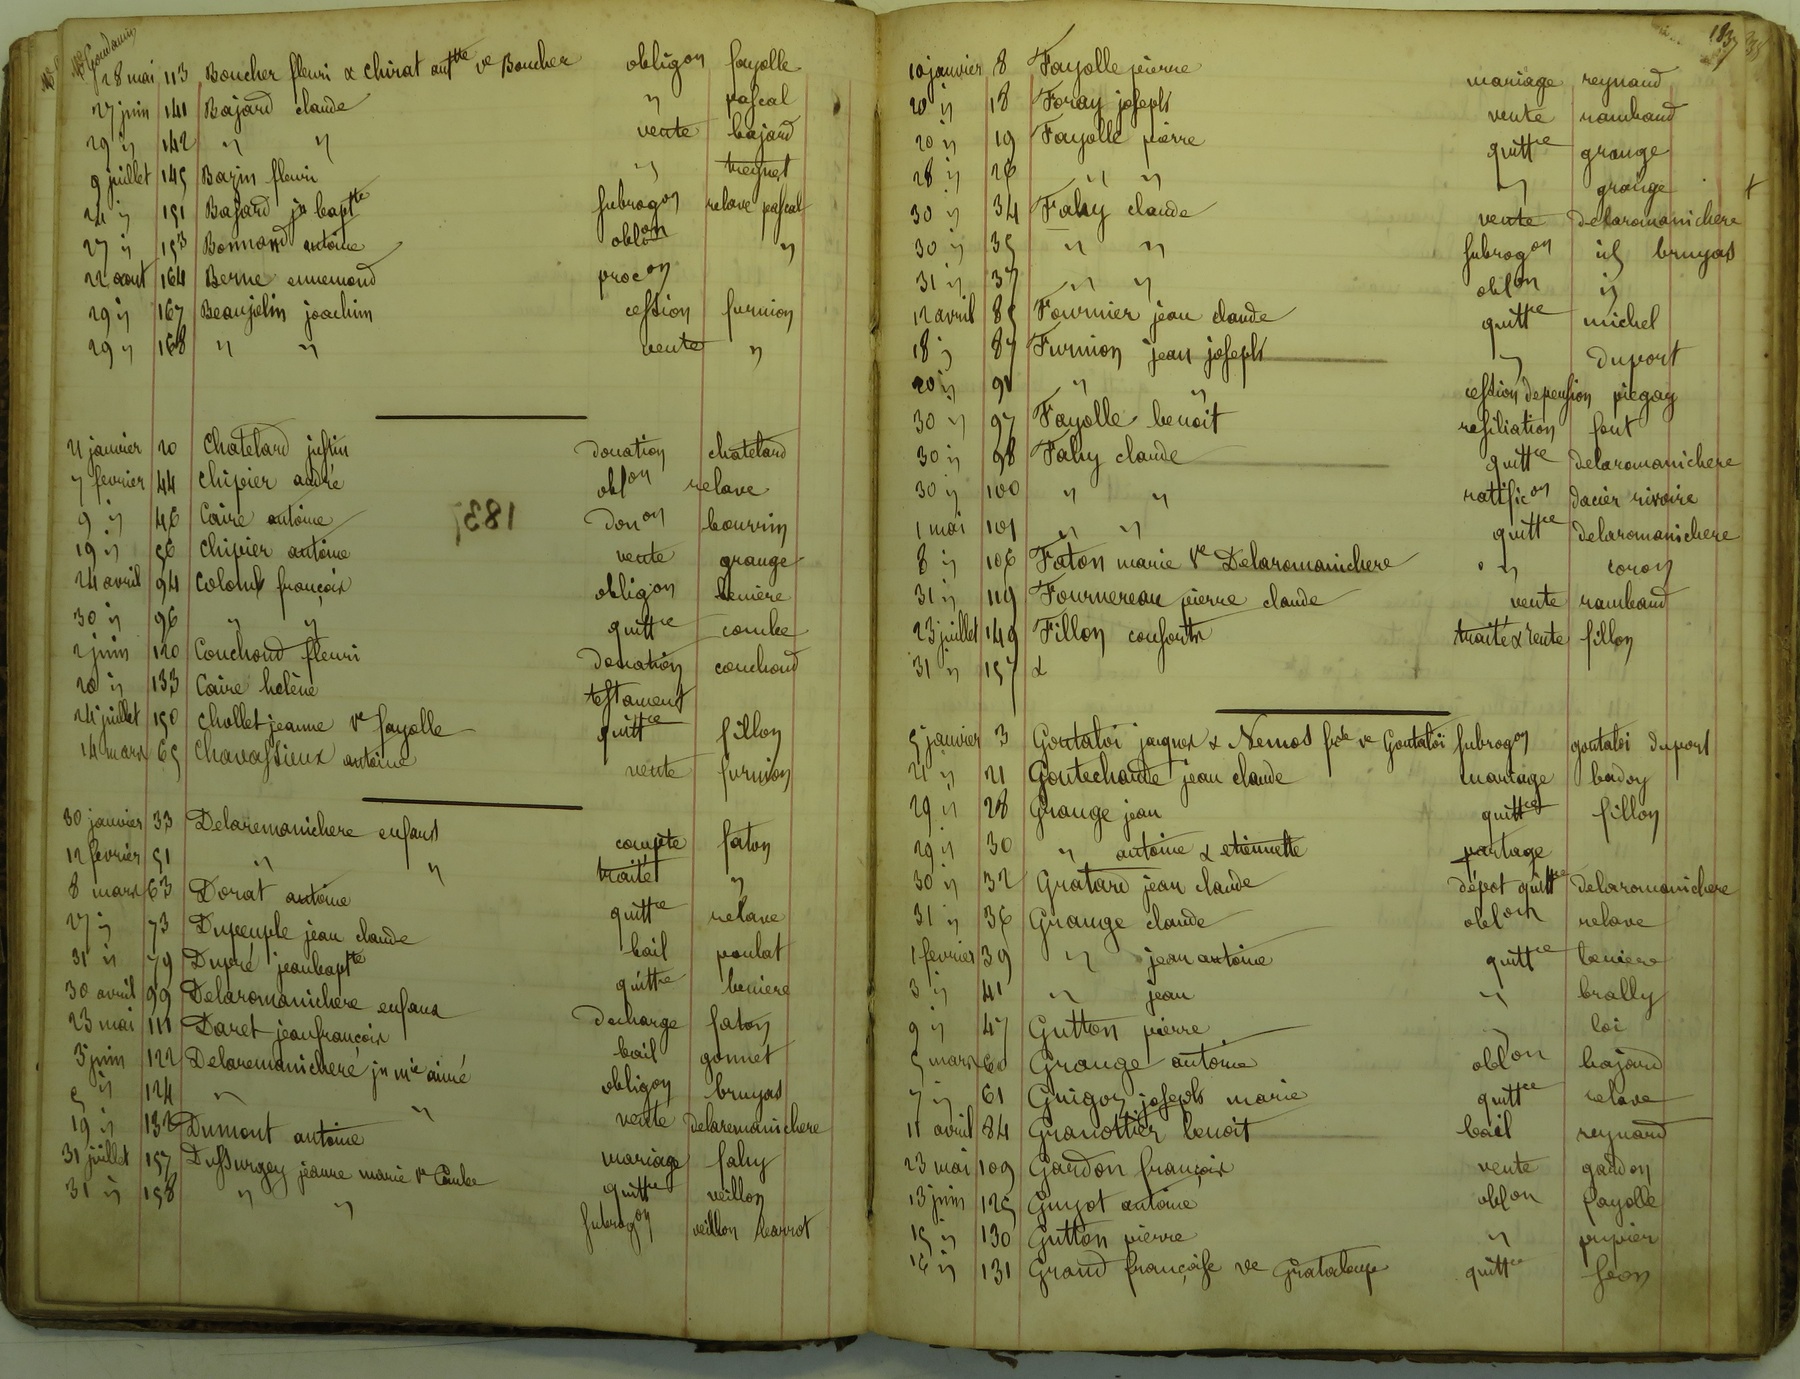 Me Goudamin
28 mai 113 Boucher fleuri & chirat antte ve Boucher obligon fayolle
27 juin 141 Bajard claude " pascal
29 " 142 " " vente bajard
9 juillet 145 Bazin fleuri "
24 " 151 Bajard jn baptte subrogon relave pascal
27 " 153 Bonnard antoine oblon "
22 aout 164 Berne ennemond procon
29 " 167 Beaujelin joachim cession furnion
29 " 168 " " vente "
21 janvier 20 Chatelard justin donation chatelard
7 fevrier 44 chipier andré oblon relave
9 " 46 Caire antoine donon bourrin
19 " 56 chipier antoine vente grange
24 avril 94 Colomb françois obligon beniere
30 " 96 " " quittce combe
2 juin 120 Couchoud fleuri donation couchoud
20 " 133 Caire helène testament
24 juillet 150 chollet jeanne ve fayolle quittce fillon
14 mars 65 Chavassieux antoine vente furnion
30 janvier 33 Delaromanichere enfans compte faton
12 fevrier 51 " " traité "
8 mars 63 Dorat antoine quittce relave
27 " 73 Dupeuple jean claude bail poulat
31 " 79 Dupre jeanbaptte quittce beniere
30 avril 99 Delaromanichere enfans decharge faton
23 mai 111 Daret jeanfrançois bail gonnet
3 juin 122 Delaromanichere jn mie aimé obligon bruyas
5 " 124 " " vente delaromanichere
19 " 132 Dumont antoine mariage fahy
31 juillet 157 Dussurgey jeanne marie ve Combe quittce veillon
31 " 158 " " subrogon veillon
1837
10 janvier 8 Fayolle pierre mariage reynaud
20 " 18 Foray joseph vente rambaud
20 " 19 Fayolle pierre quittce grange
28 " 26 " " " grange
30 " 34 Fahy claude vente delaromanichere
30 " 35 " " subrogon id bruyas
31 " 37 " " oblon "
12 avril 85 Fournier jean claude quittce michel
18 " 87 Furnion jean joseph " duport
20 " 91 " " cession de pension piegay
30 " 97 Fayolle benoit resiliation font
30 " 98 Fahy claude quittce delaromanichere
30 " 100 " " rattificon dacier rivoire
1 mai 101 " " quittce delaromanichere
8 " 106 Faton marie Ve Delaromanichere " coron
31 " 119 Fournereau pierre claude vente rambaud
23 juillet 149 Fillon consorts traité & vente fillon
31 " 157 &
5 janvier 3 Goutaloi jacques & Nemos ve Goutaloi subrogon goutaloi duport
21 " 21 Goutechaude jean claude mariage badoy
29 " 28 Grange jean quittce fillon
29 " 30 " antoine & etiennette partage
30 " 32 Gratard jean claude dépot quittce delaromanichere
31 " 36 Grange claude oblon relave
1 fevrier 39 " jean antoine quittce beniere
3 " 41 " jean " brally
9 " 47 Gutton pierre " loi
5 mars 60 Grange antoine oblon bajard
7 " 61 Guigon joseph marie quittce relave
11 avril 84 Granottier benoit bail reynard
23 mai 109 Gardon françois vente gardon
13 juin 125 Guyot antoine oblon fayolle
15 " 130 Gutton pierre " pupier
16 " 131 Grand françoise ve Grataloup quittce